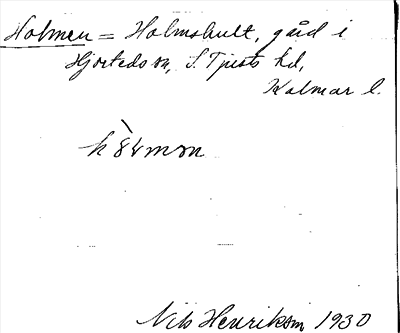 Holmen = Holmshult, gård i
Hjorteds sn, S. Tjusts hd,
Kalmar l.
Nils Henrikson 1930